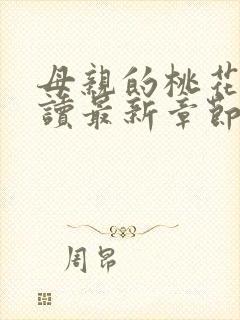 母親的桃花
讀最新章節
周昂